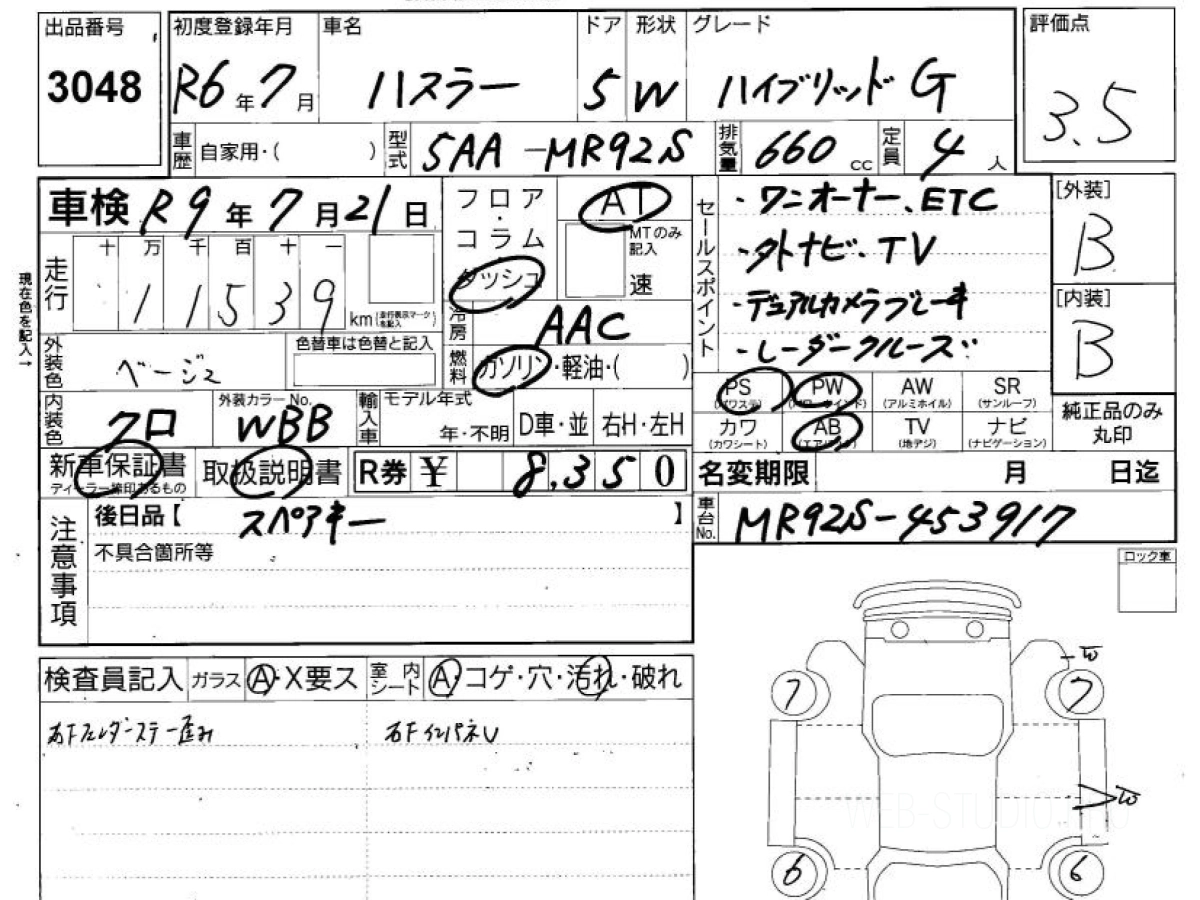 出品番号 初度登録年月 車名 ドア 形状 グレード 評価点
3048 R6年7月 ハスラー 5 W ハイブリッド G 3.5
車歴 自家用・( ) 型式 5AA-MR92S 排気量 660 cc 定員 4人
車検 R9年7月21日
フロア・コラム ダッシュ AT MTのみ記入 速
セールスポイント
・ワンオーナー、ETC
・外ナビ・TV
・デュアルカメラブレーキ
・レーダークルーズ
[外装] B
[内装] B
現在色を記入→
走行 十 万 千 百 十 一
1 1 5 3 9 km (走行表示マークを記入)
冷房 AAC
外装色 ベージュ 色替車は色替と記入
燃料 ガソリン・軽油・( )
内装色 クロ 外装カラーNo. WBB 輸入車 モデル年式 年・不明 D車・並 右H・左H
PS (パワステ) PW (パワーウインド) AW (アルミホイル) SR (サンルーフ)
カワ (カワシート) AB (エアバック) TV (地デジ) ナビ (ナビゲーション)
純正品のみ丸印
新車保証書 ディーラー捺印あるもの 取扱説明書 R券 ¥ 8,350
名変期限 月 日迄
車台No. MR92S-453917
注意事項 後日品【 スペアキー 】
不具合箇所等
ロック車
検査員記入 ガラス A・X要ス 室内シート A・コゲ・穴・汚れ・破れ
右Fフェンダーステー歪み 右FインパネU
7 7
6 6
WEB-STUDIO.PRO